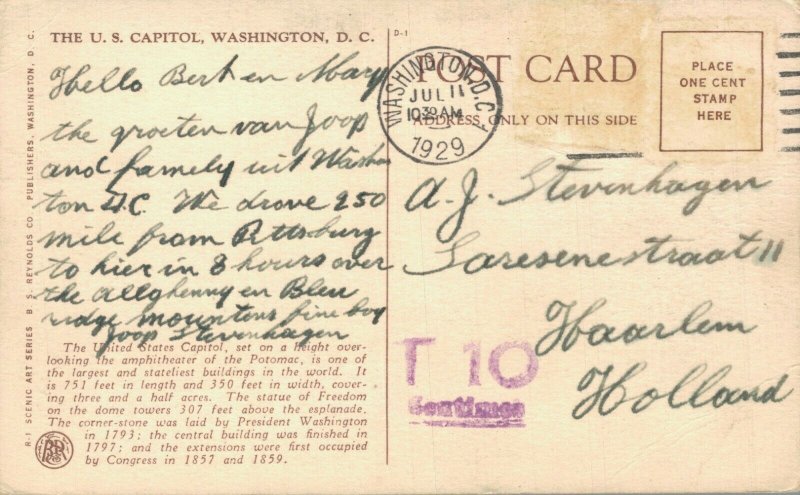 THE U. S. CAPITOL, WASHINGTON, D. C.
Hello Bert en Mary
the groeten van Joop
and famely uit Washin
ton D.C. We drove 250
mile from Pittsburg
to hier in 8 hours over
the allghenny en Bleu
ridge mountens fine boy
Joop Stevenhagen
The United States Capitol, set on a height over-
looking the amphitheater of the Potomac, is one of
the largest and stateliest buildings in the world. It
is 751 feet in length and 350 feet in width, cover-
ing three and a half acres. The statue of Freedom
on the dome towers 307 feet above the esplanade.
The corner-stone was laid by President Washington
in 1793; the central building was finished in
1797; and the extensions were first occupied
by Congress in 1857 and 1859.
R-1 SCENIC ART SERIES B. S. REYNOLDS CO., PUBLISHERS, WASHINGTON, D. C.
D-1
POST CARD
ADDRESS ONLY ON THIS SIDE
WASHINGTON, D.C.
JUL 11
1030 AM
1929
PLACE
ONE CENT
STAMP
HERE
A. J. Stevenhagen
Saresenestraat 11
Haarlem
Holland
T 10
Centimes